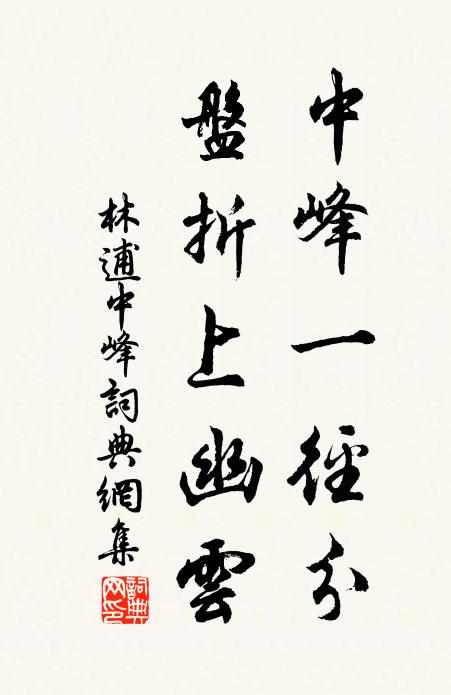 中峰一徑分
盤折上幽雲
林逋中峰詞典網集
詞典網印